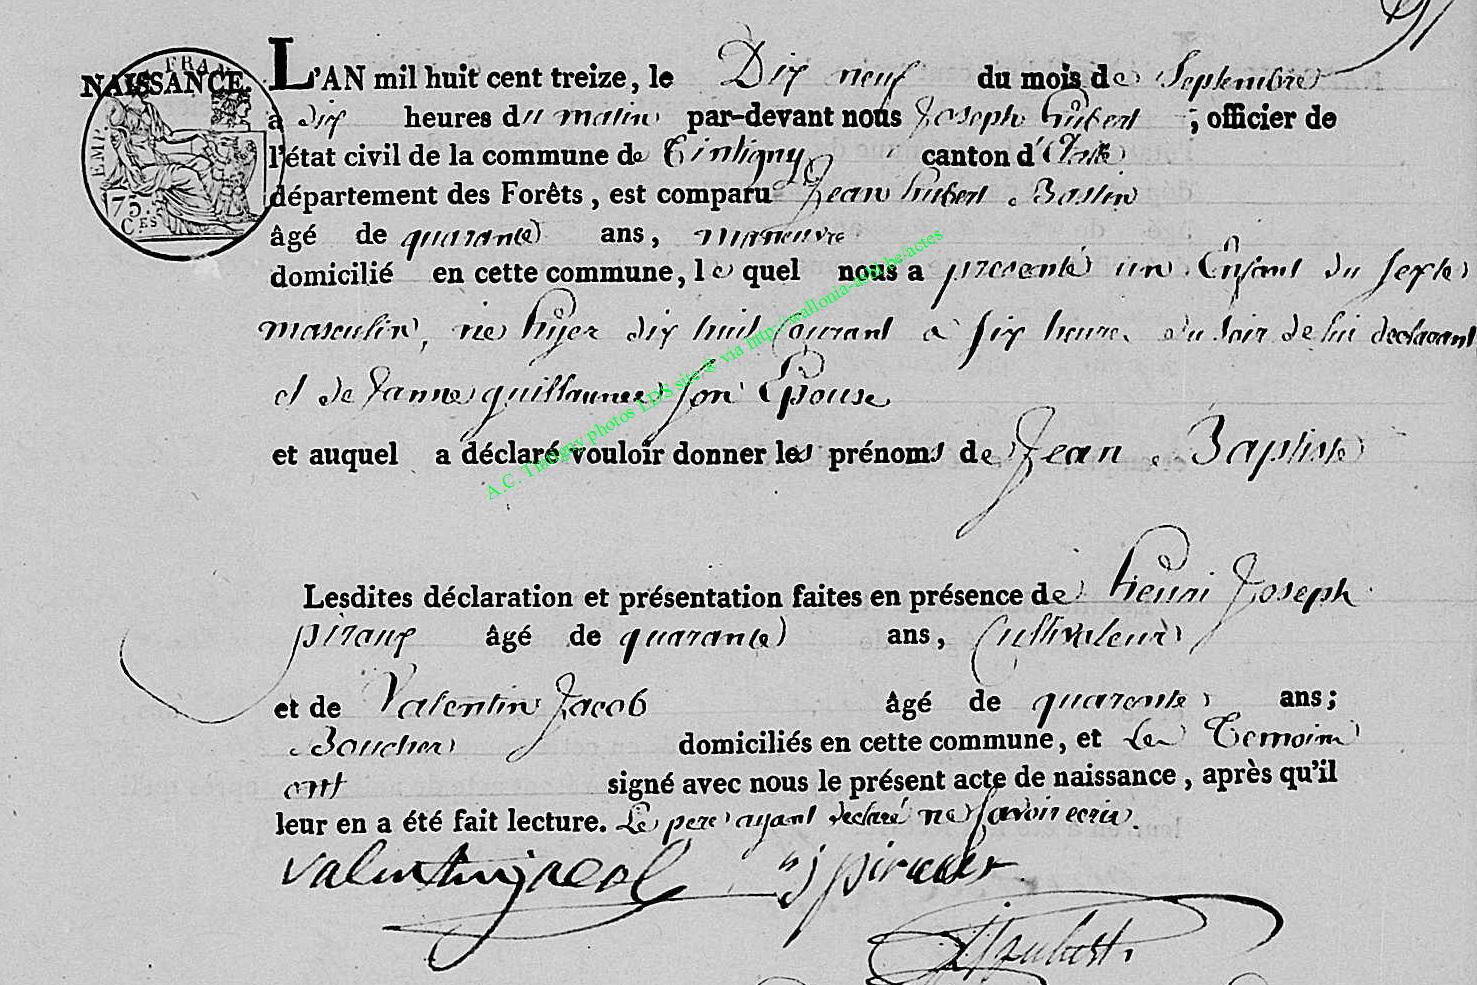 NAISSANCE. L'AN mil huit cent treize, le Dix neuf du mois de Septembre
a dix heures du matin par-devant nous Joseph hubert ; officier de
l'état civil de la commune de Tintigny canton d'
département des Forêts, est comparu Jean hubert Bastin
âgé de quarante ans, maneuvre
domicilié en cette commune, le quel nous a presenté un Enfant du sexe
masculin, né hyer dix huit Courant a six heures du soir de lui declarant
et de Janne guillaume son Epouse
et auquel a déclaré vouloir donner les prénoms de Jean Baptiste
Lesdites déclaration et présentation faites en présence de henri Joseph
piraux âgé de quarante ans, Cultivateur
et de Valentin Jacob âgé de quarente ans;
Boucher domiciliés en cette commune, et Les Temoins
ont signé avec nous le présent acte de naissance, après qu'il
leur en a été fait lecture. Le pere ayant declaré ne savoir ecrire.
valentin jacob hj piraux
J hubert
FRAN
EMP.
75.
CES
A.C. Tintigny photos LDS site & via http://wallonia-asbl.be/actes